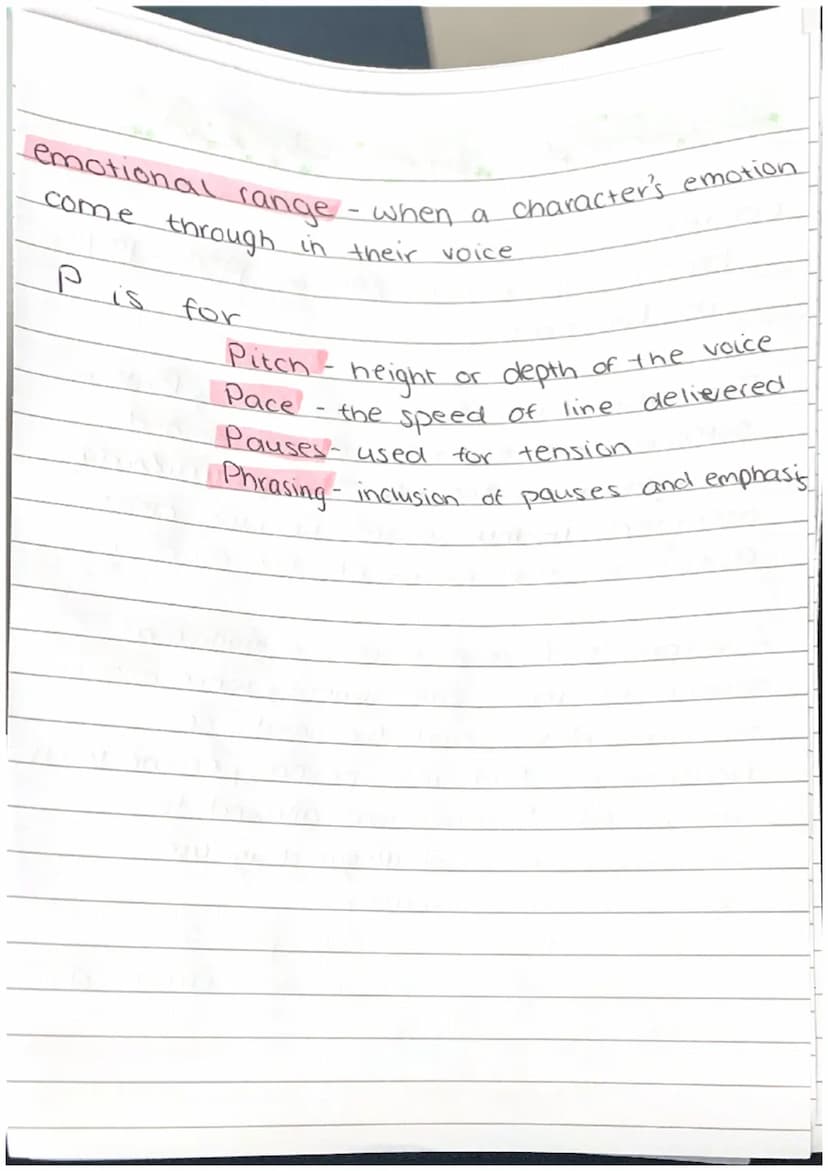 emotional range - when a character's emotion
come through in their voice
P is for
Pitch - height or depth of the voice
Pace - the speed of line delievered
Pauses - used for tension
Phrasing - inclusion of pauses and emphasis